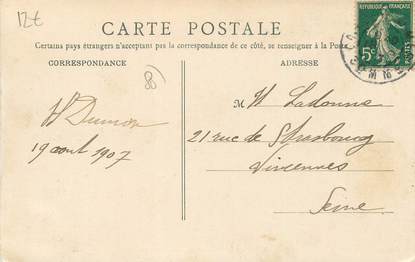 12€
CARTE POSTALE
Certains pays étrangers n'acceptant pas la correspondance de ce côté, se renseigner à la Poste
CORRESPONDANCE
ADRESSE
RÉPUBLIQUE FRANÇAISE
5c
POSTES
80
Dumon
19 aout 1907
M
21 rue de Strasbourg
Vincennes
Seine